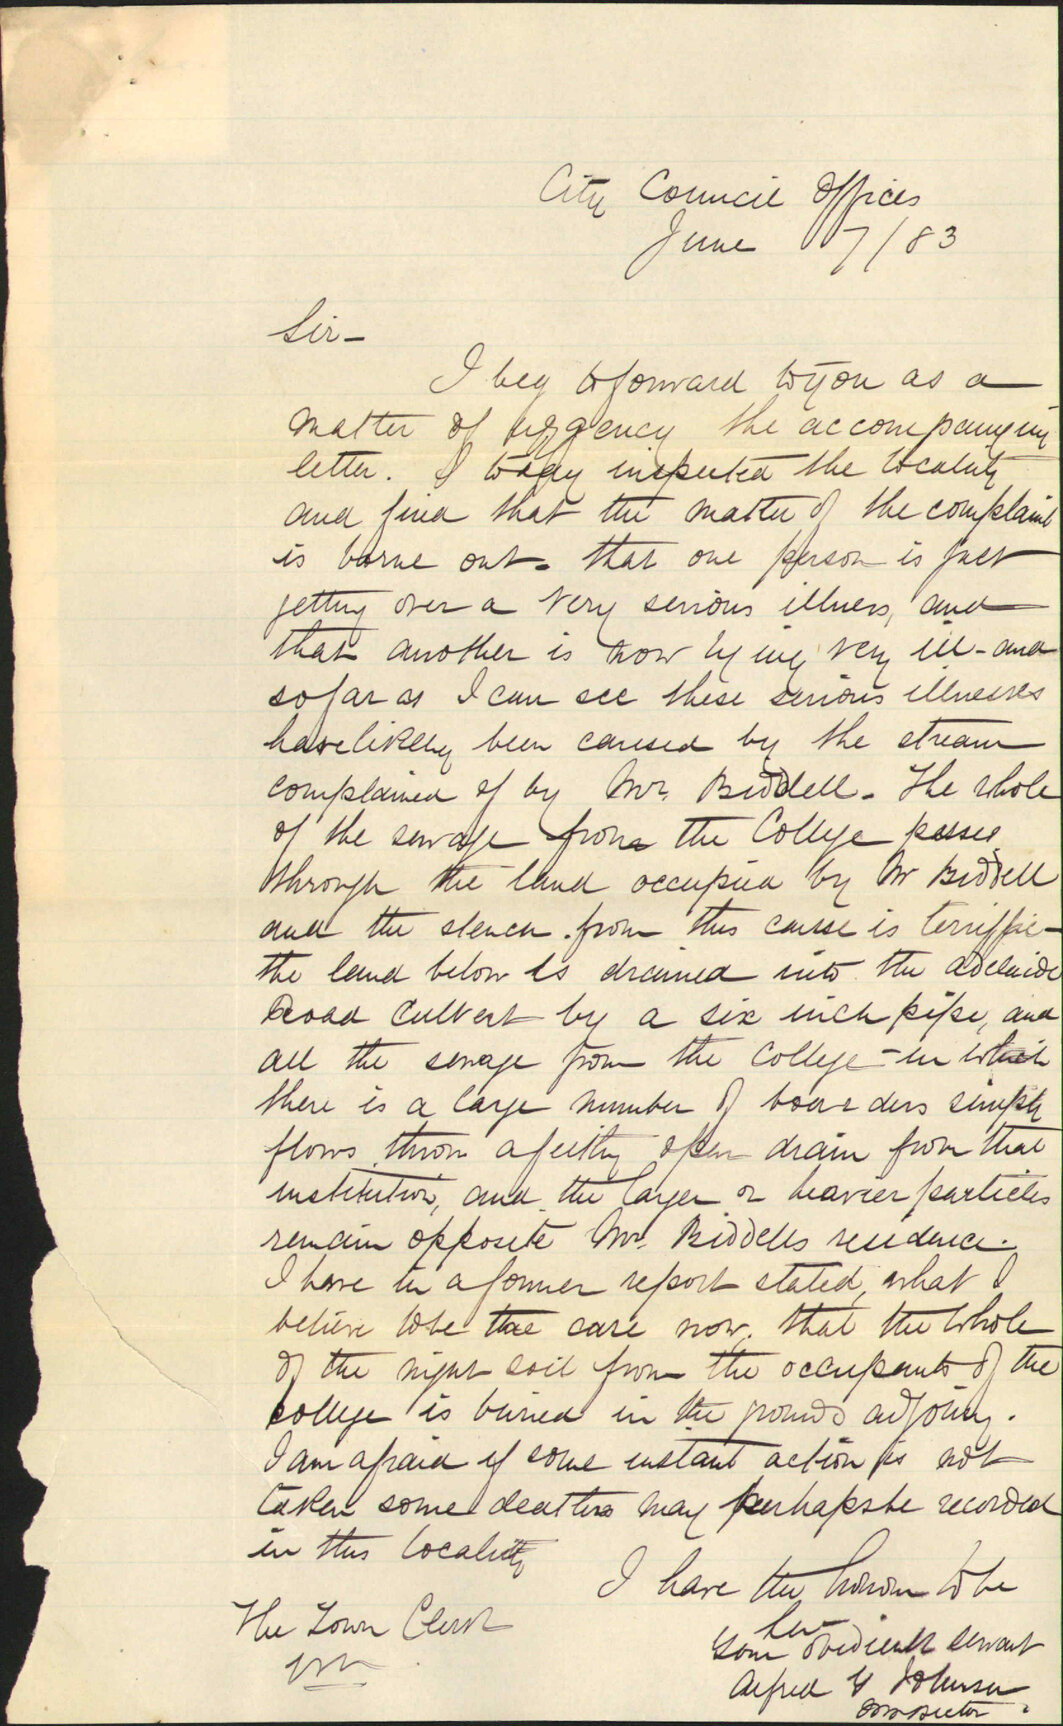 City Council Offices
June 7/83
Sir -
I beg to forward to you as a
matter of urgency the accompanying
letter. I today inspected the locality
and find that the matter of the complaint
is borne out - that one person is just
getting over a very serious illness, and
that another is now lying very ill - and
so far as I can see these serious illnesses
have likely been caused by the stream
complained of by Mr. Biddell - The whole
of the sewage from the College passes
through the land occupied by Mr Biddell
and the stench from this cause is terriffic -
the land below is drained into the Adelaide
Road Culvert by a six inch pipe, and
all the sewage from the College - in which
there is a large number of boarders simply
flows throu a filthy open drain from that
institution, and the larger or heavier particles
remain opposite Mr. Biddells residence.
I have in a former report stated, what I
believe to be the case now, that the whole
of the night soil from the occupants of the
college is buried in the grounds adjoing.
I am afraid if some instant action is not
taken some deaths may perhaps be recorded
in this locality
I have the honor to be
Sir
Your obedient servant
Alfred G Johnson
Inspector
The Town Clerk